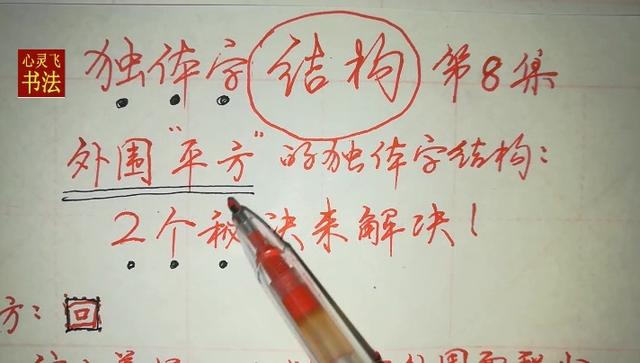 心灵飞
书法
独体字结构 第8集
外围"平方"的独体字结构:
2个秘决来解决!
方: 回